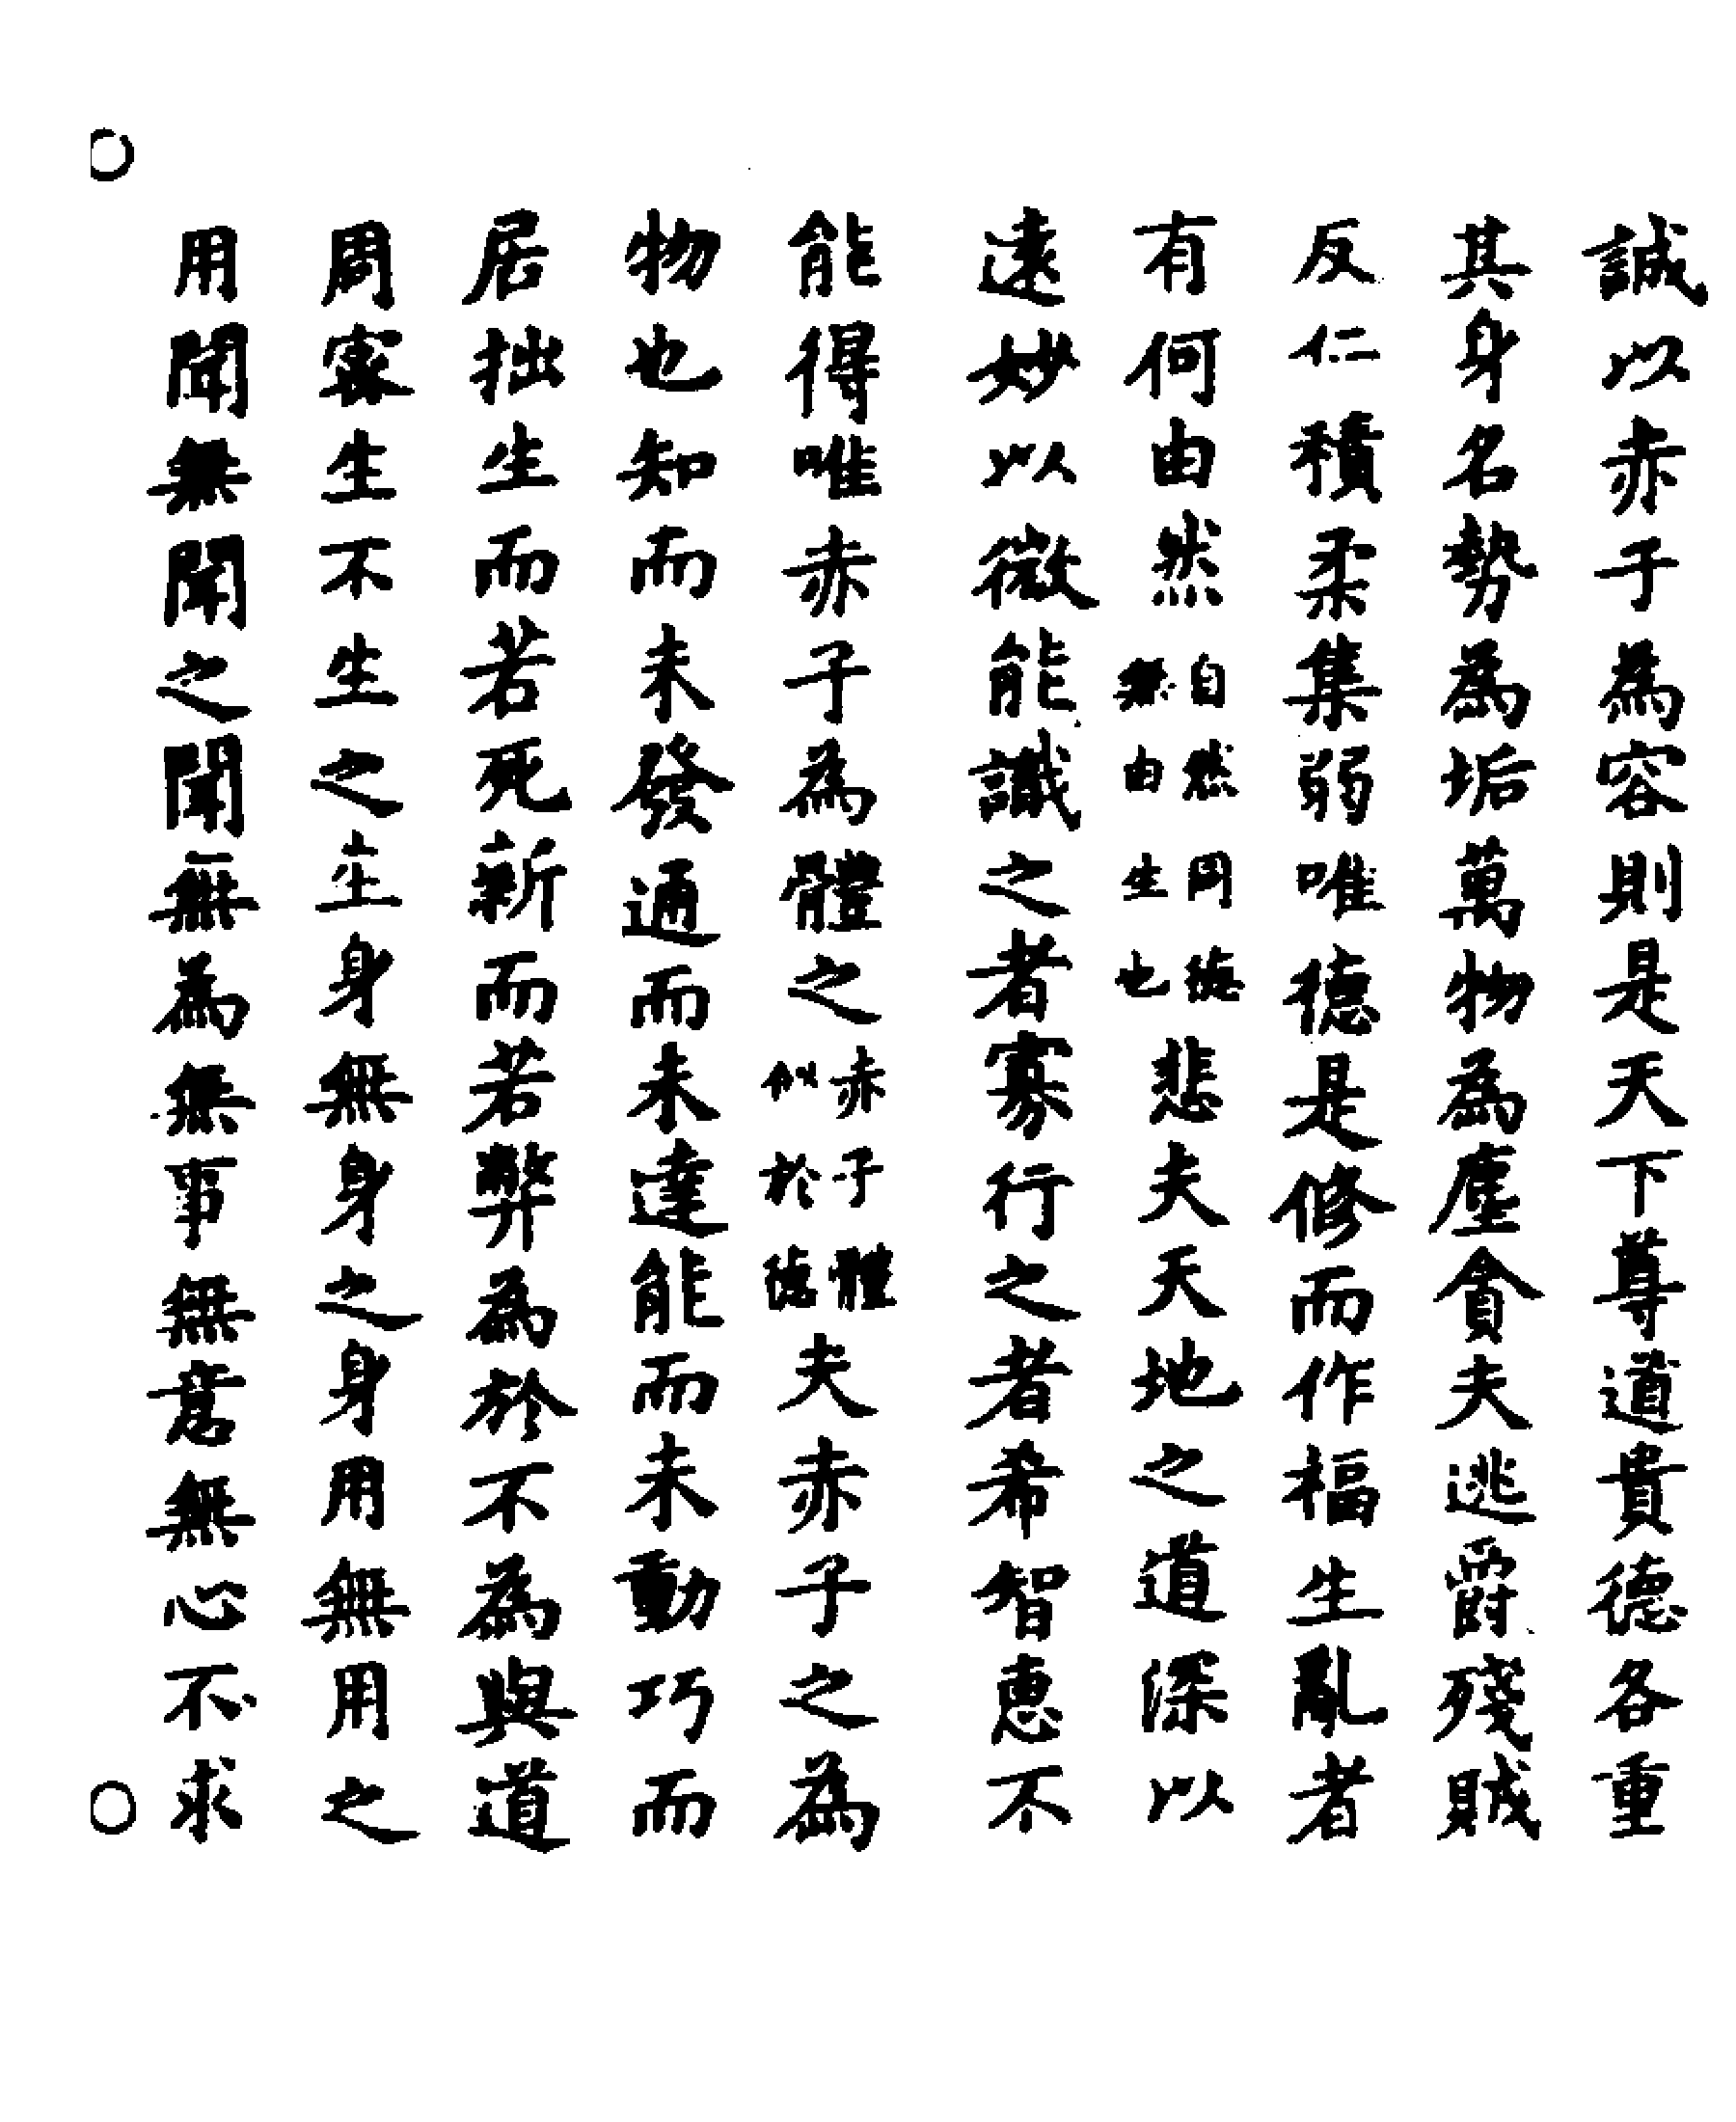 誠以赤子為容則是天下尊道貴德各重
其身名勢為垢萬物為塵貪夫逃爵殘賊
反仁積柔集弱唯德是修而作福生亂者
有何由然自然同德無由生也悲夫天地之道深以
遠妙以微能識之者寡行之者希智惠不
能得唯赤子為體之赤子體似於德夫赤子之為
物也知而未發通而未達能而未動巧而
居拙生而若死新而若弊為於不為與道
周密生不生之生身無身之身用無用之
用聞無聞之聞無為無事無意無心不求